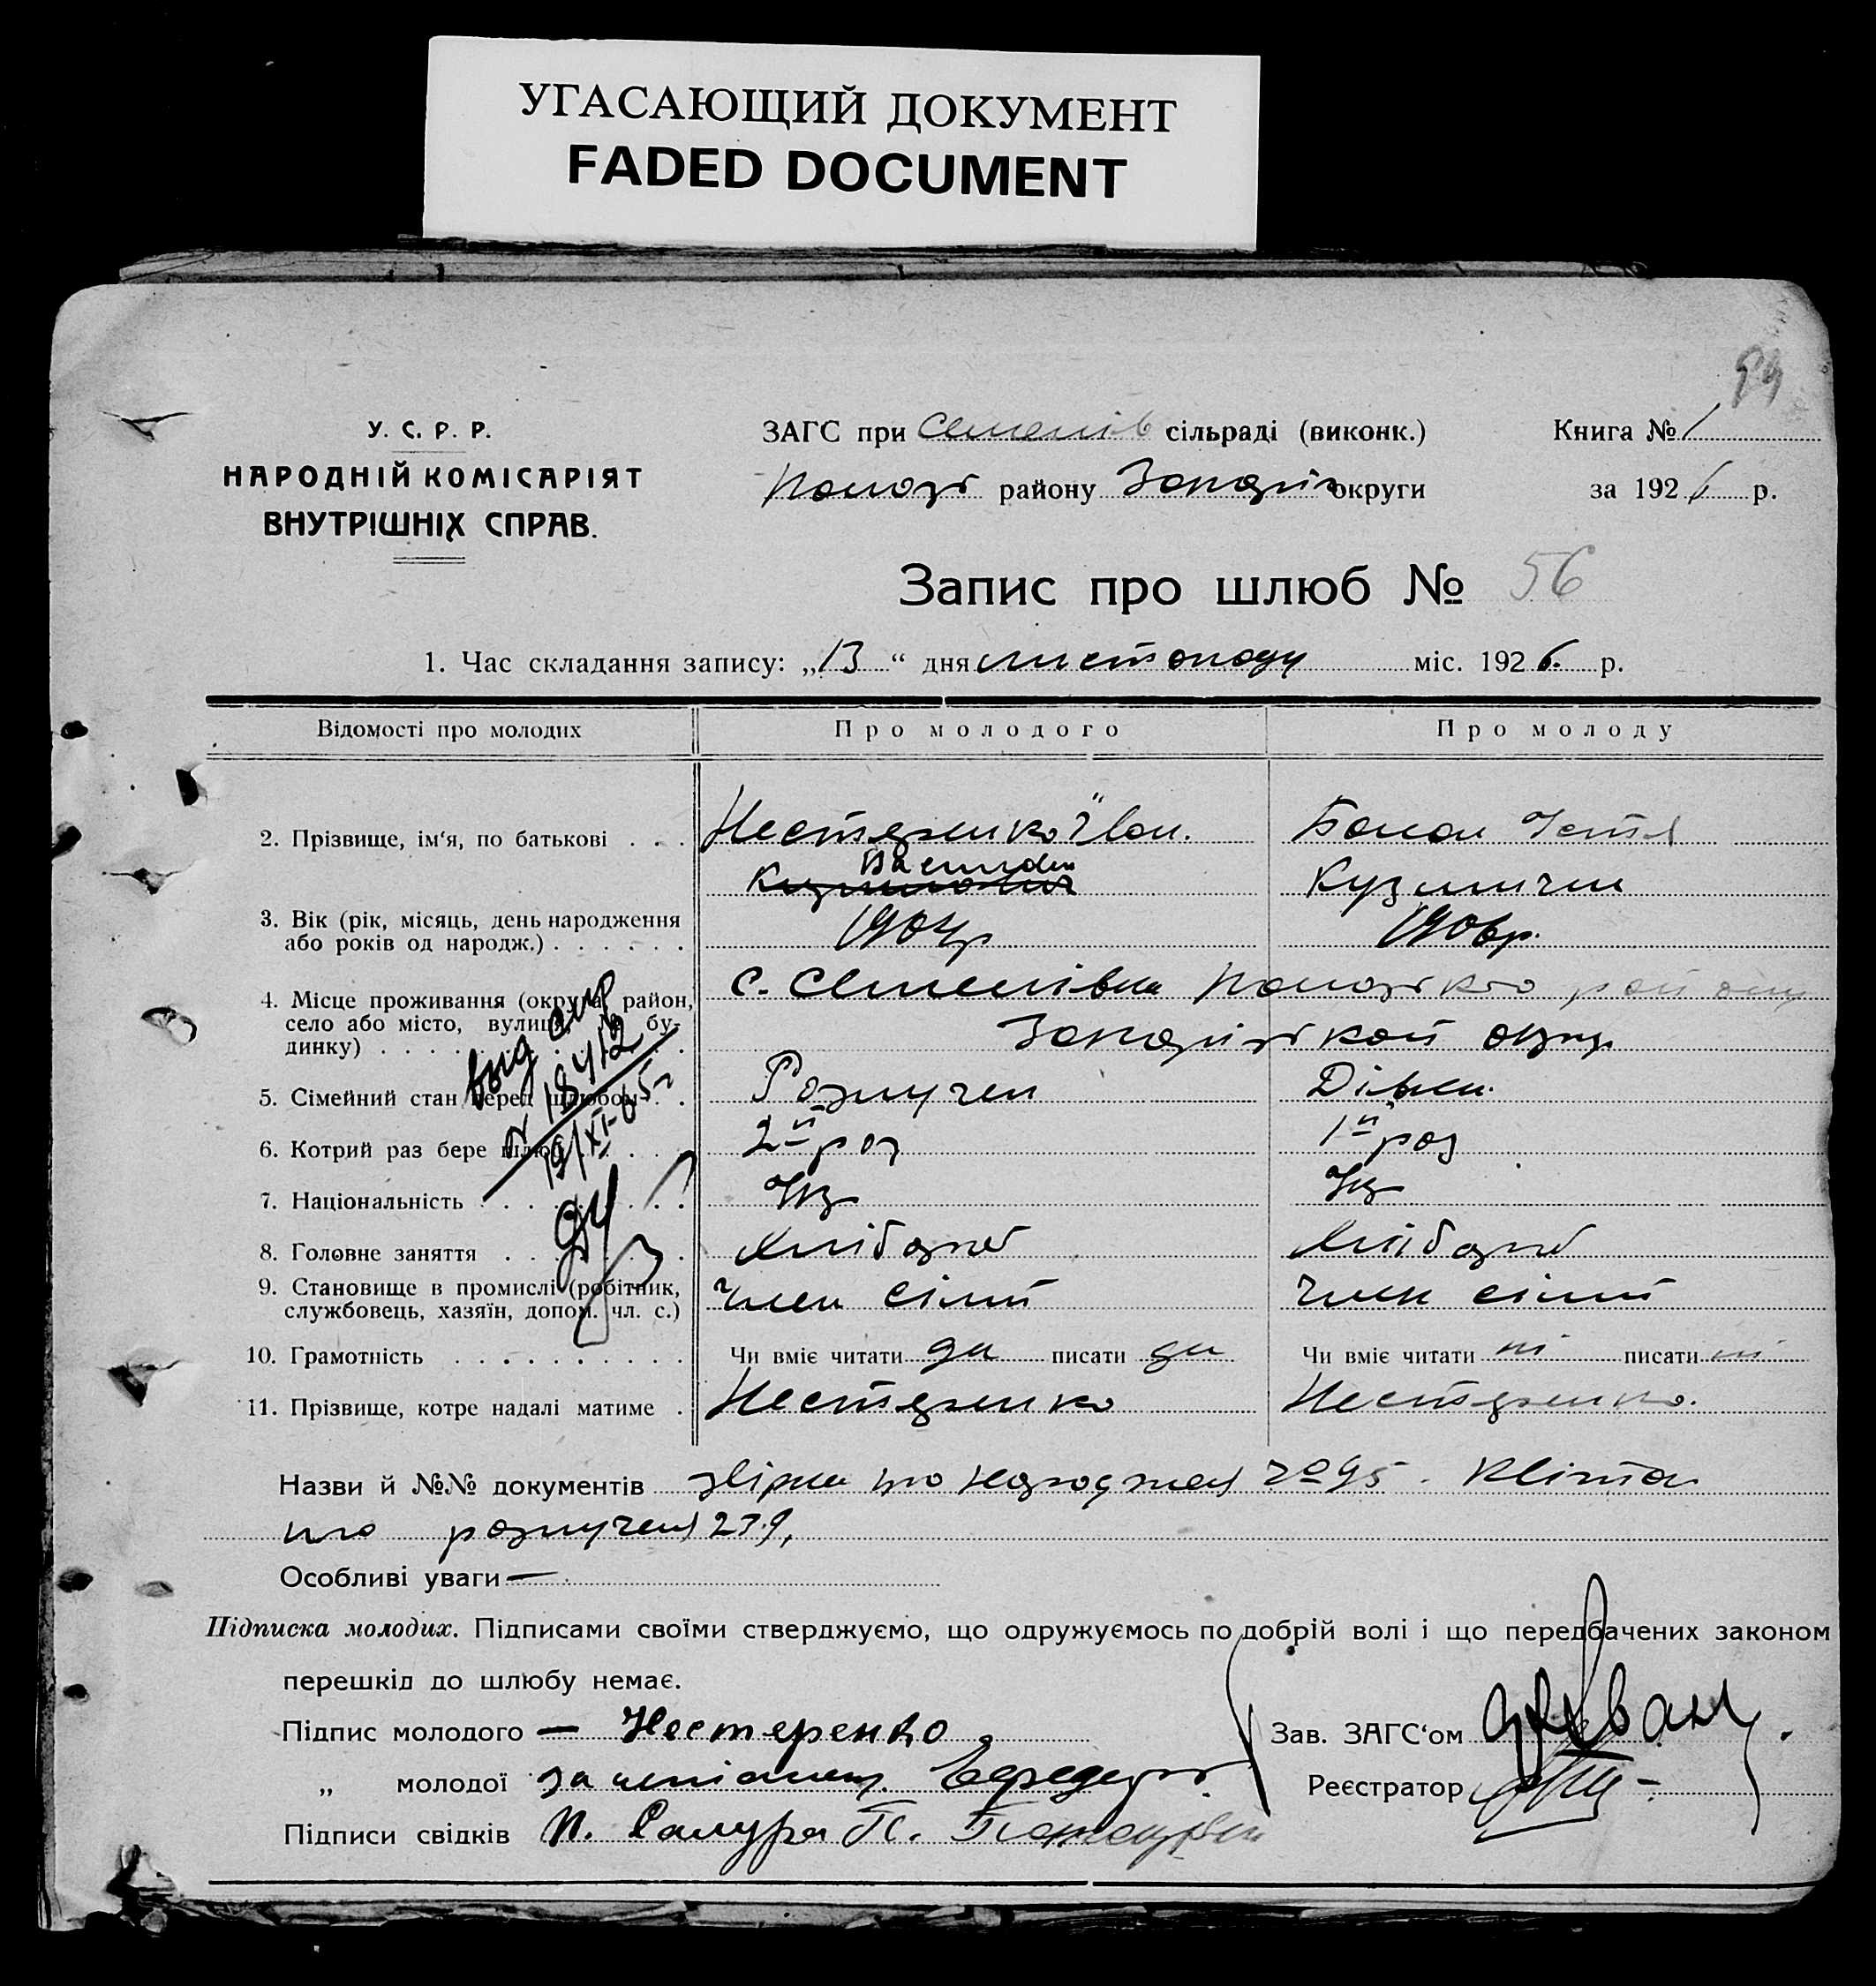 УГАСАЮЩИЙ ДОКУМЕНТ
FADED DOCUMENT
У. С. Р. Р.
НАРОДНІЙ КОМІСАРІЯТ
ВНУТРІШНІХ СПРАВ.
ЗАГС при Семенів сільраді (виконк.)
Книга № 1
району округи
за 1926 р.
Запис про шлюб № 56
1. Час складання запису: „13“ дня листопаду міс. 1926. р.
Відомості про молодих Про молодого Про молоду
2. Прізвище, ім'я, по батькові . . . Нестеренко Іван. Устя
Кузьмичем
3. Вік (рік, місяць, день народження
або років од народж.) . . . . . . 1904р 1906р.
4. Місце проживання (округа, район, с. Семенівка
село або місто, вулиця, № бу-
динку) . . . . . . . . . . . .
вид
18412
19/XI-65г
5. Сімейний стан перед шлюбом . . Розлучен Дівка.
6. Котрий раз бере шлюб . . . . . 2й раз 1й раз
7. Національність . . . . . . . . Укр Укр
8. Головне заняття . . . . . . . Хлібороб Хлібороб
9. Становище в промислі (робітник,
службовець, хазяїн, допом. чл. с.) член сімї член сімї
10. Грамотність . . . . . . . . . . Чи вміє читати да писати да Чи вміє читати ні писати ні
11. Прізвище, котре надалі матиме . Нестеренко Нестеренко.
Назви й №№ документів про № 95.
про розлучення 239,
Особливі уваги —
Підписка молодих. Підписами своїми стверджуємо, що одружуємось по добрій волі і що передбачених законом
перешкід до шлюбу немає.
Підпис молодого — Нестеренко
Зав. ЗАГС'ом
„ молодої за
Реєстратор
Підписи свідків П.